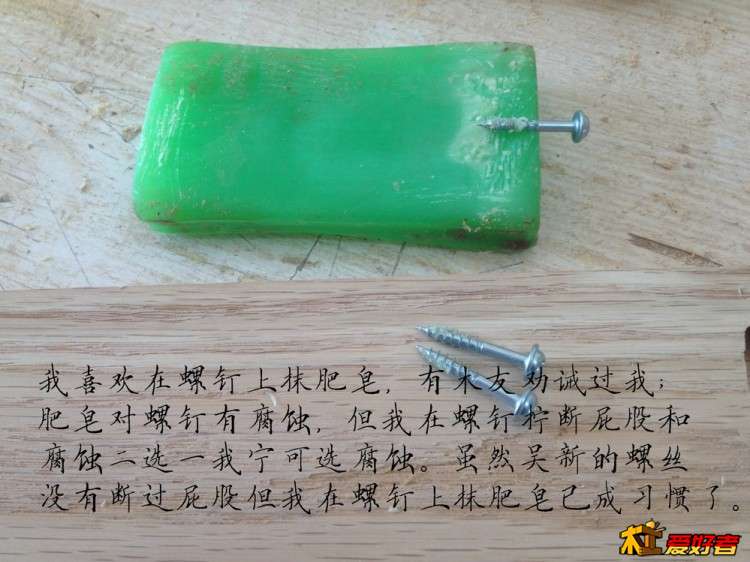 我喜欢在螺钉上抹肥皂，有木友劝诫过我；
肥皂对螺钉有腐蚀，但我在螺钉柠断屁股和
腐蚀二选一我宁可选腐蚀。虽然吴新的螺丝
没有断过屁股但我在螺钉上抹肥皂已成习惯了。
木工爱好者